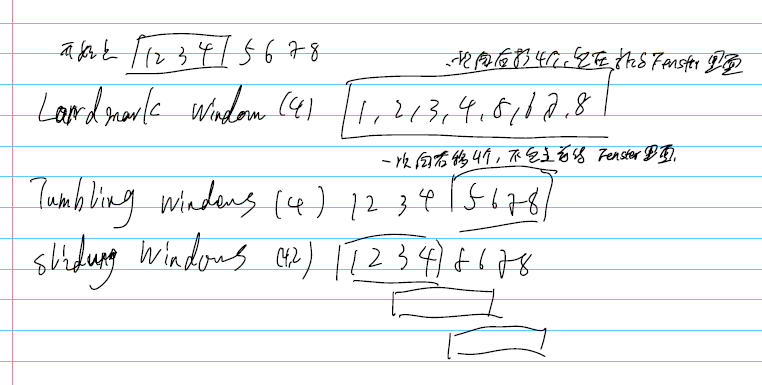 开始是 1 2 3 4 5 6 7 8
一次向后移4个,包在前的 Fenster 里面
Landmark Window (4) 1, 2, 3, 4, 5, 6 7, 8
一次向右移4个, 不包 Fenster 里面.
Tumbling Windows (4) 1 2 3 4 5 6 7 8
Sliding Windows (4,2) 1 2 3 4 5 6 7 8